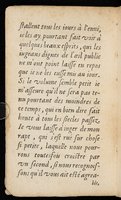 stallent tous les iours à l'envi,
ie les ay pourtant fait voir à
quelques beaux esprits, qui les
iugeans dignes de l'œil public
ne m'ont point laissé en repos
que ie ne les eusse mis au iour.
Si le volume semble petit ie
m'asseure qu'il ne sera pas te-
nu pourtant des moindres de
ce temps, qui en bien dire fait
honte à tous les siecles passez.
Ie vous laisse à iuger de mon
vayn, qui est sur ma chose
si petite, laquelle nous pour-
rons toutesfois croistre par
vn second, si nous recognois-
sons qu'il vous ait esté agrea-
ble,